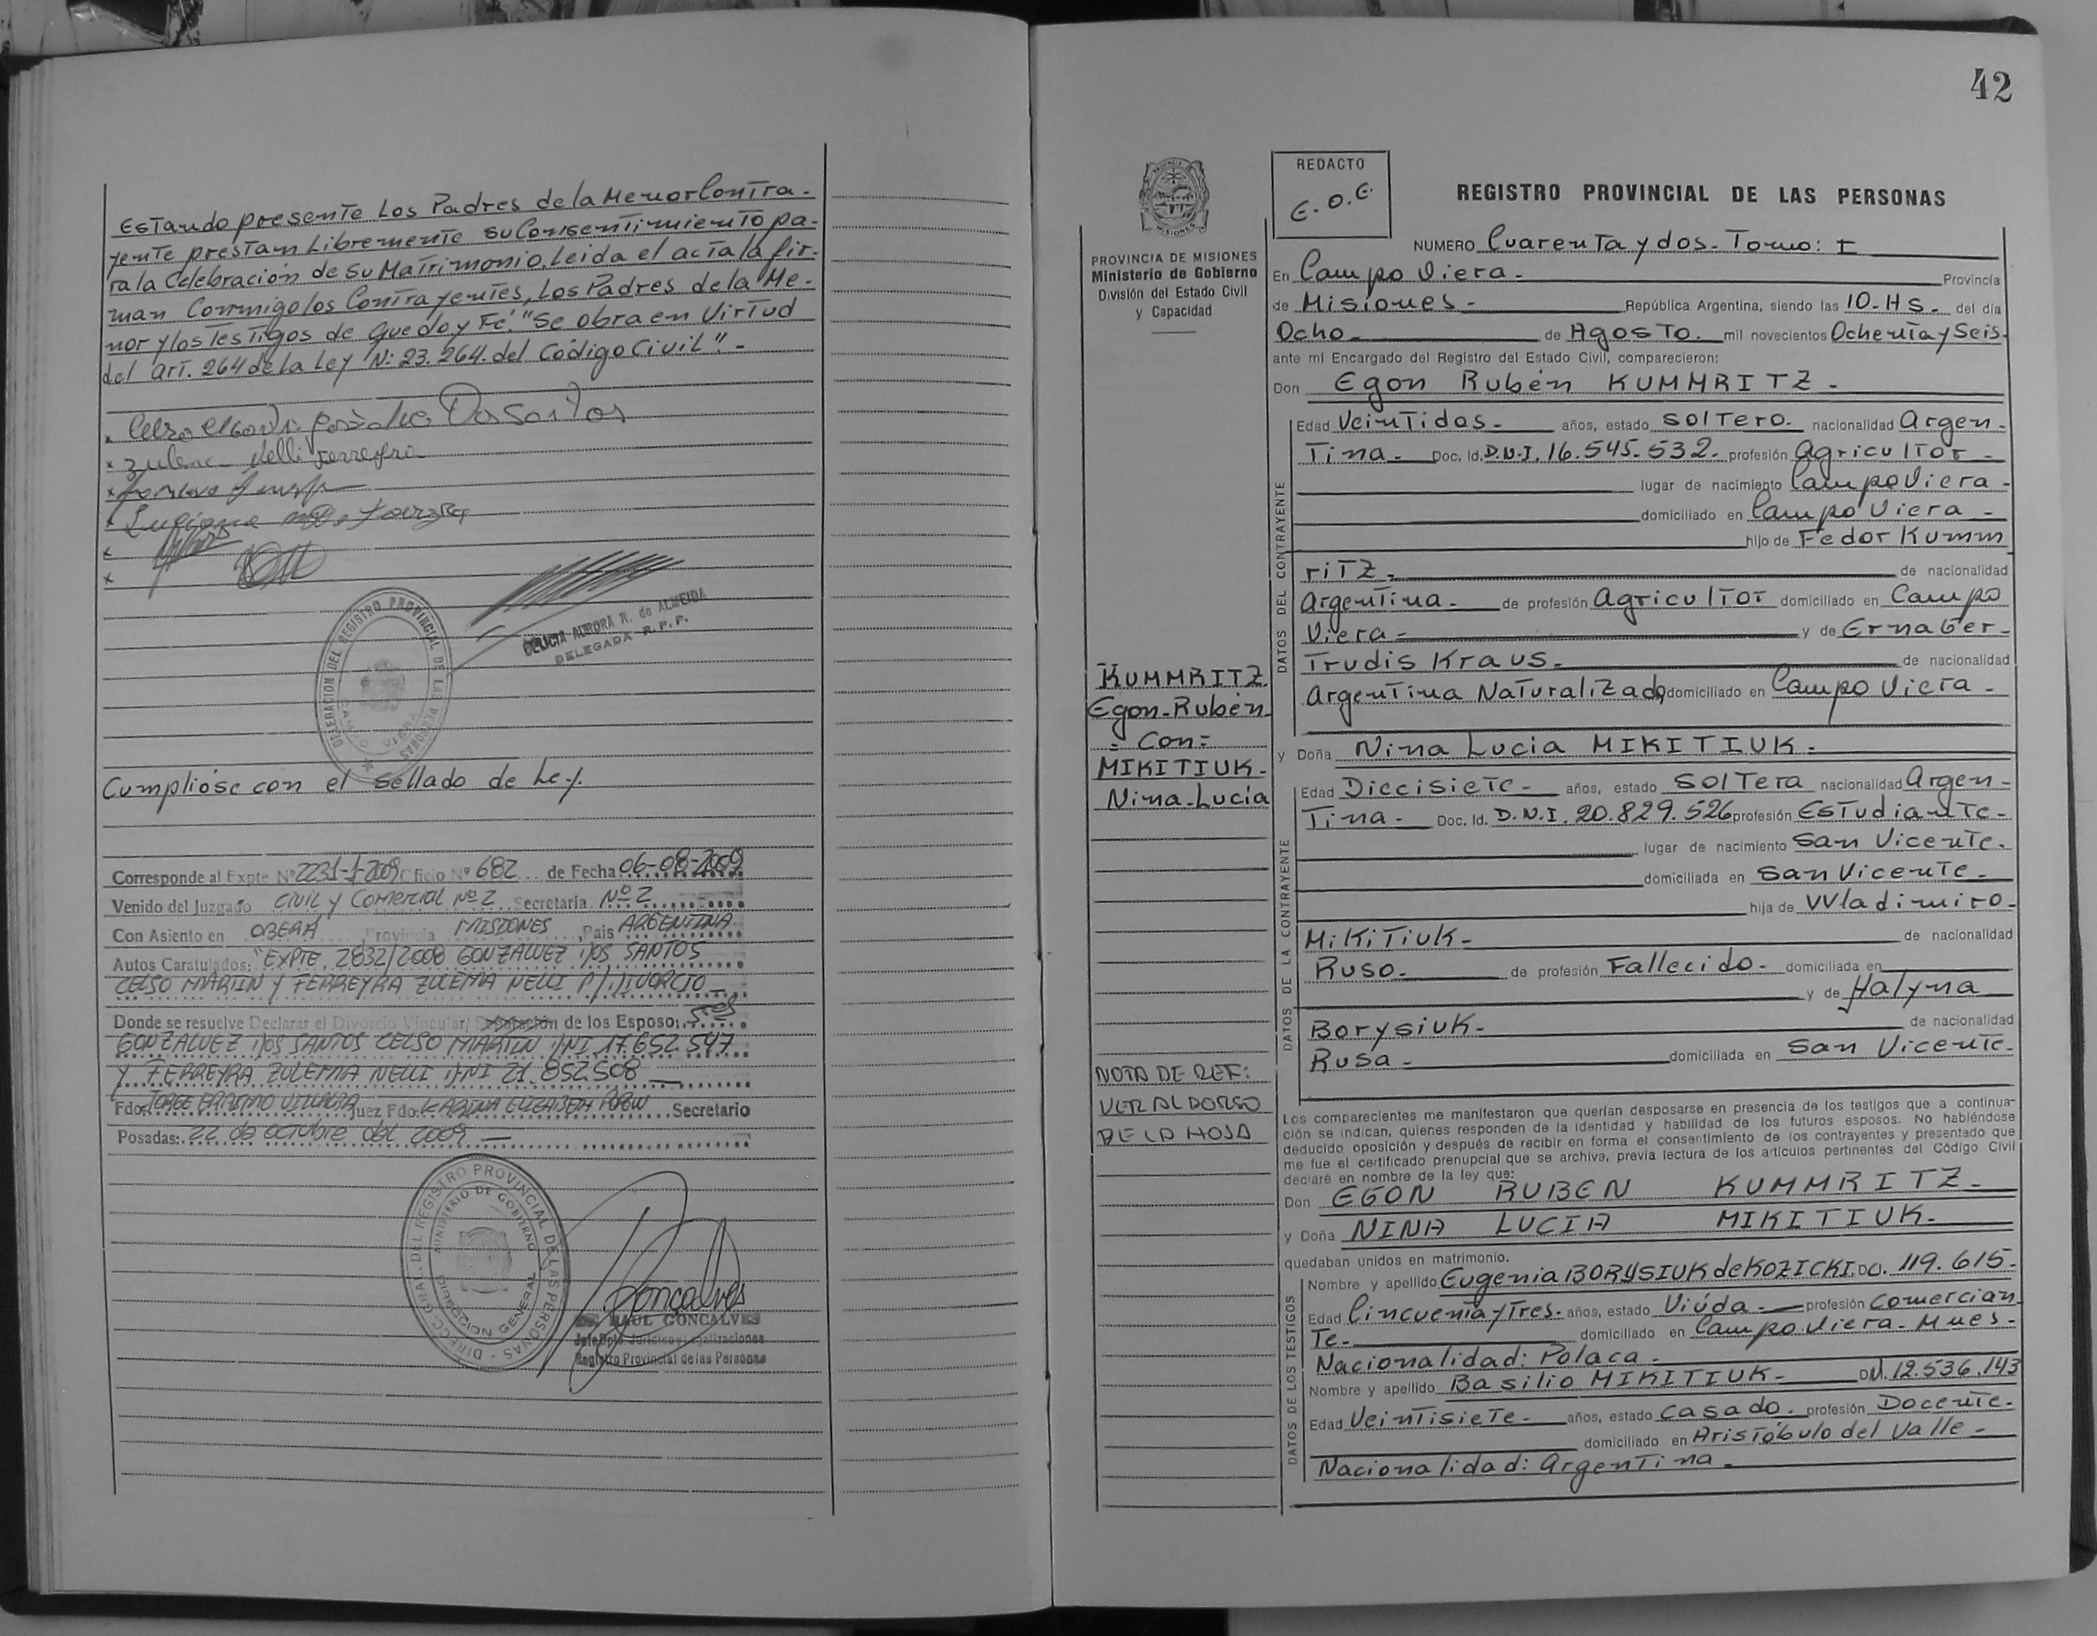 Estando presente Los Padres de la Menor Contra-
yente prestan Libremente su Consentimiento pa-
ra la Celebración de Su Matrimonio. Leida el acta la fir-
man Conmigo los Contrayentes, Los Padres de la Me-
nor y los testigos de que doy Fé. "Se obra en Virtud
del art. 264 de la Ley N: 23.264. del Código Civil". -
Dos Santos
x Zulema Nelli Ferreyra
x
x
x
x
DELEGACION DEL REGISTRO PROVINCIAL DE LAS PERSONAS
CAMPO VIERA
DELICIA AURORA R. de ALMEIDA
DELEGADA R. P. P.
Cumplióse con el Sellado de Ley.
Corresponde al Expte Nº 2231-1-2009 Oficio Nº 682 de Fecha 06-08-2009
Venido del Juzgado CIVIL y COMERCIAL Nº 2 Secretaria Nº 2
Con Asiento en OBERA Provincia MISIONES, Pais ARGENTINA
Autos Caratulados: "EXPTE. 2832/2008 GONZALVEZ DOS SANTOS
CELSO MARTIN y FERREYRA ZULEMA NELLI P/ DIVORCIO
Donde se resuelve Declarar el Divorcio Vincular/ Separación de los Esposos:
GONZALVEZ DOS SANTOS CELSO MARTIN DNI 17.652.547
y FERREYRA ZULEMA NELLI DNI 21.852.508
Fdo: JORGE ERASMO VILLALBA Juez Fdo: KARINA ELIZABETH Secretario
Posadas: 22 de octubre del 2009
DIRECC. GRAL. DEL REGISTRO PROVINCIAL DE LAS PERSONAS
MINISTERIO DE GOBIERNO
DIRECCION GENERAL
Goncalves
RAUL GONCALVES
Jefe Dpto. Jurídico y Legalizaciones
Registro Provincial de las Personas
42
PROVINCIA DE MISIONES
Ministerio de Gobierno
División del Estado Civil
y Capacidad
KUMMRITZ
Egon-Rubén
= Con =
MIKITIUK-
Nina-Lucía
NOTA DE REF:
VER AL DORSO
DE LA HOJA
REDACTO
E.O.E.
REGISTRO PROVINCIAL DE LAS PERSONAS
NUMERO Cuarenta y dos- Tomo: I
En Campo Viera- Provincia
de Misiones- República Argentina, siendo las 10-HS- del día
Ocho- de Agosto. mil novecientos Ochenta y Seis-
ante mí Encargado del Registro del Estado Civil, comparecieron:
Don Egon Rubén KUMMRITZ-
DATOS DEL CONTRAYENTE
Edad Veintidos- años, estado Soltero- nacionalidad Argen-
tina- Doc. Id. D.N.I. 16.545.532- profesión Agricultor-
lugar de nacimiento Campo Viera-
domiciliado en Campo Viera-
hijo de Fedor Kumm
ritz- de nacionalidad
Argentina- de profesión Agricultor domiciliado en Campo
Viera- y de Erna Ger-
trudis Kraus- de nacionalidad
Argentina Naturalizada domiciliado en Campo Viera-
y Doña Nina Lucía MIKITIUK-
DATOS DE LA CONTRAYENTE
Edad Diecisiete- años, estado Soltera nacionalidad Argen-
tina- Doc. Id. D.N.I. 20.829.526 profesión Estudiante-
lugar de nacimiento San Vicente-
domiciliada en San Vicente-
hija de Wladimiro-
Mikitiuk- de nacionalidad
Ruso- de profesión Fallecido- domiciliada en
y de Halyna
Borysiuk- de nacionalidad
Rusa- domiciliada en San Vicente-
Los comparecientes me manifestaron que querían desposarse en presencia de los testigos que a continua-
ción se indican, quienes responden de la identidad y habilidad de los futuros esposos. No habiéndose
deducido oposición y después de recibir en forma el consentimiento de los contrayentes y presentado que
me fue el certificado prenupcial que se archiva, previa lectura de los artículos pertinentes del Código Civil
declaré en nombre de la ley que:
Don EGON RUBEN KUMMRITZ-
y Doña NINA LUCIA MIKITIUK-
quedaban unidos en matrimonio.
DATOS DE LOS TESTIGOS
Nombre y apellido Eugenia BORYSIUK de KOZICKI. 119.615-
Edad Cincuenta y Tres- años, estado Viuda- profesión Comercian
te- domiciliado en Campo Viera- Mnes-
Nacionalidad: Polaca-
Nombre y apellido Basilio MIKITIUK- DNI. 12.536.143
Edad Veintisiete- años, estado Casado- profesión Docente-
domiciliado en Aristóbulo del Valle-
Nacionalidad: Argentina-